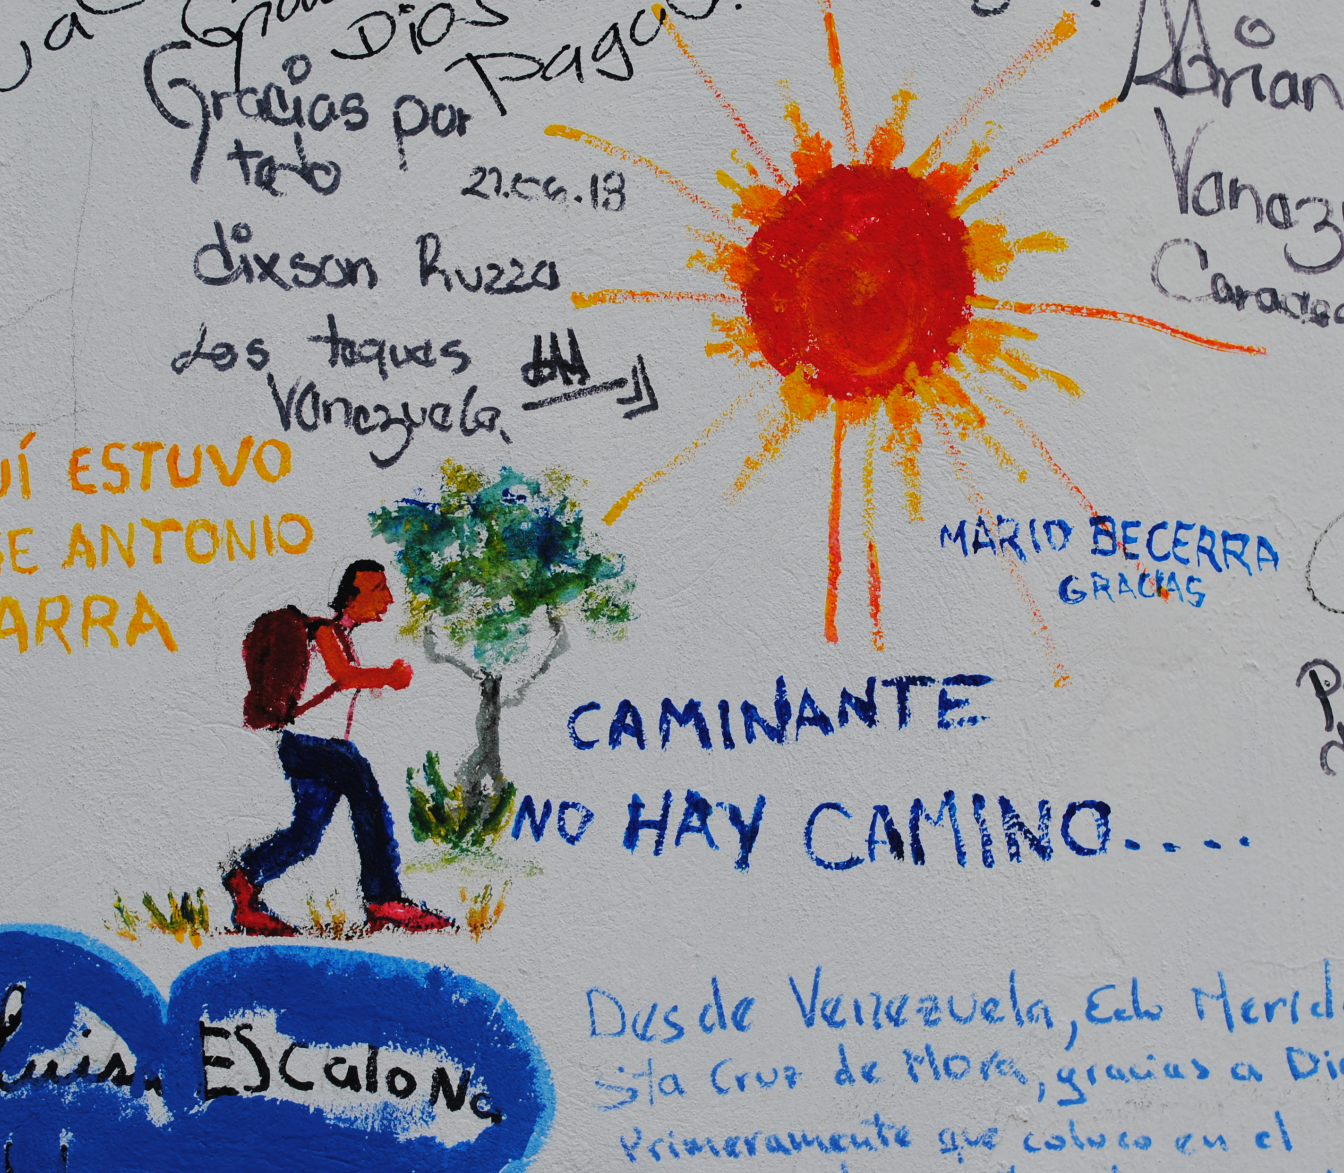 Dios
pago
Gracias por
todo
27.06.18
dixson Ruzza
Los teques
Vanezuela
UÍ ESTUVO
SE ANTONIO
ARRA
Abrian
Vanazu
MARIO BECERRA
GRACIAS
CAMINANTE
NO HAY CAMINO.....
Luis ESCALONA
Desde Venezuela, Edo Merid
Sta Cruz de Mora, gracias a Dio
Primeramente que coloco en el